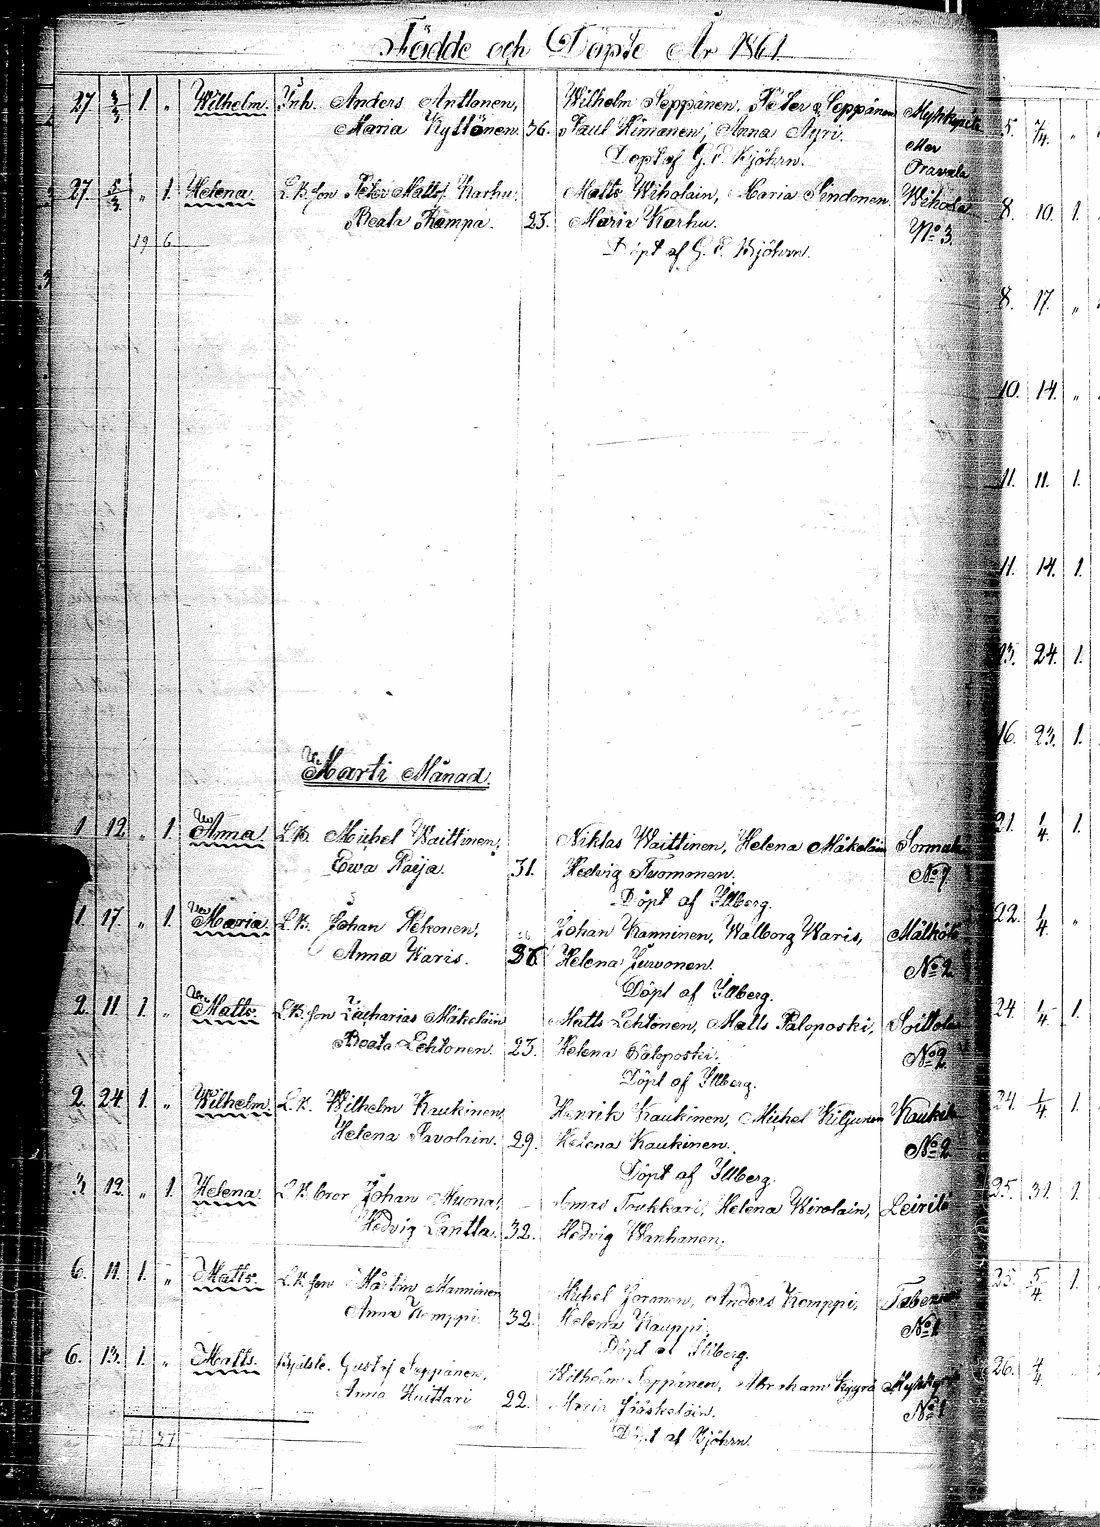 Födde och Döpte År 1861.
27. 3/3 1. " Wilhelm. Inh. Anders Anttonen, Wilhelm Seppänen, Peter Seppänen
Maria Kyttönen. 36. Paul Himanen, Anna Äyri.
Döpt af G. E. Björn.
Oravala
27. 5/3 " 1. Helena L.B. son Peter Matts. Karhu. Matts Wiholain, Maria Sindonen. Wihola
Beata Rämpa. 23. Maria Karhu. No 3.
19 6 Döpt af G. E. Björn.
Marti Månad.
1. 12. " 1. Anna L.B. Michel Waittinen, Niklas Waittinen, Helena Mäkeläin Sormula
Ewa Raija. 31. Hedvig Tuomonen. No 7
Döpt af Illberg.
1. 17. " 1. Maria. L.B. Johan Pekonen, Johan Kanninen, Walborg Waris,
Anna Waris. 36 Helena Jurvonen. No 2
Döpt af Illberg.
2. 11. 1. " Matts. L.B. son Zacharias Mäkeläin Matts Lehtonen, Matts Paloposki,
Beata Lehtonen. 23. Helena Paloposki. No 2
Döpt af Illberg.
2. 24. 1. " Wilhelm. L.B. Wilhelm Kaukinen, Henrik Kaukinen, Michel Kiljunen
Helena Pavolain. 29. Helena Kaukinen. No 2
Döpt af Illberg.
3. 12. " 1. Helena. L.B. bror Johan Muona, Tomas Toukkari, Helena Wirolain,
Hedvig Lantta. 32. Hedvig Wanhanen,
6. 11. 1. " Matts. L.B. son Mårten Manninen Michel Jormen, Anders Kemppi,
Anna Kemppi. 32. Helena Kauppi. No 1
Döpt af Illberg.
6. 13. 1. " Matts. Gustaf Seppänen, Wilhelm Seppänen, Abraham Kyyrä
Anna Huittari 22. Maria Jääskeläin. No 1
27 Döpt af Björn.
5. 7/4 "
8. 10. 1.
8. 17. "
10. 14. "
11. 11. 1.
11. 14. 1.
13. 24. 1.
16. 23. 1.
21. 1/4 1.
22. 1/4 "
24. 1/4 1.
24. 1/4 1.
25. 31. 1.
25. 5/4 1.
26. 4/4